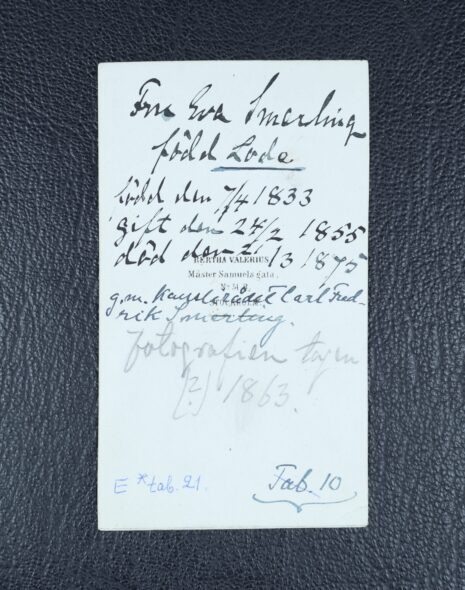 Fru Eva Smerling
född Lode
född den 7/4 1833
gift den 24/2 1855
död den 2/3 1875
BERTHA VALERIUS
Mäster Samuels gata,
g.m. Kansilrådet Carl Fred-
rik Smerling.
fotografien tagen
(?) 1863.
E * tab. 21.
Tab. 10